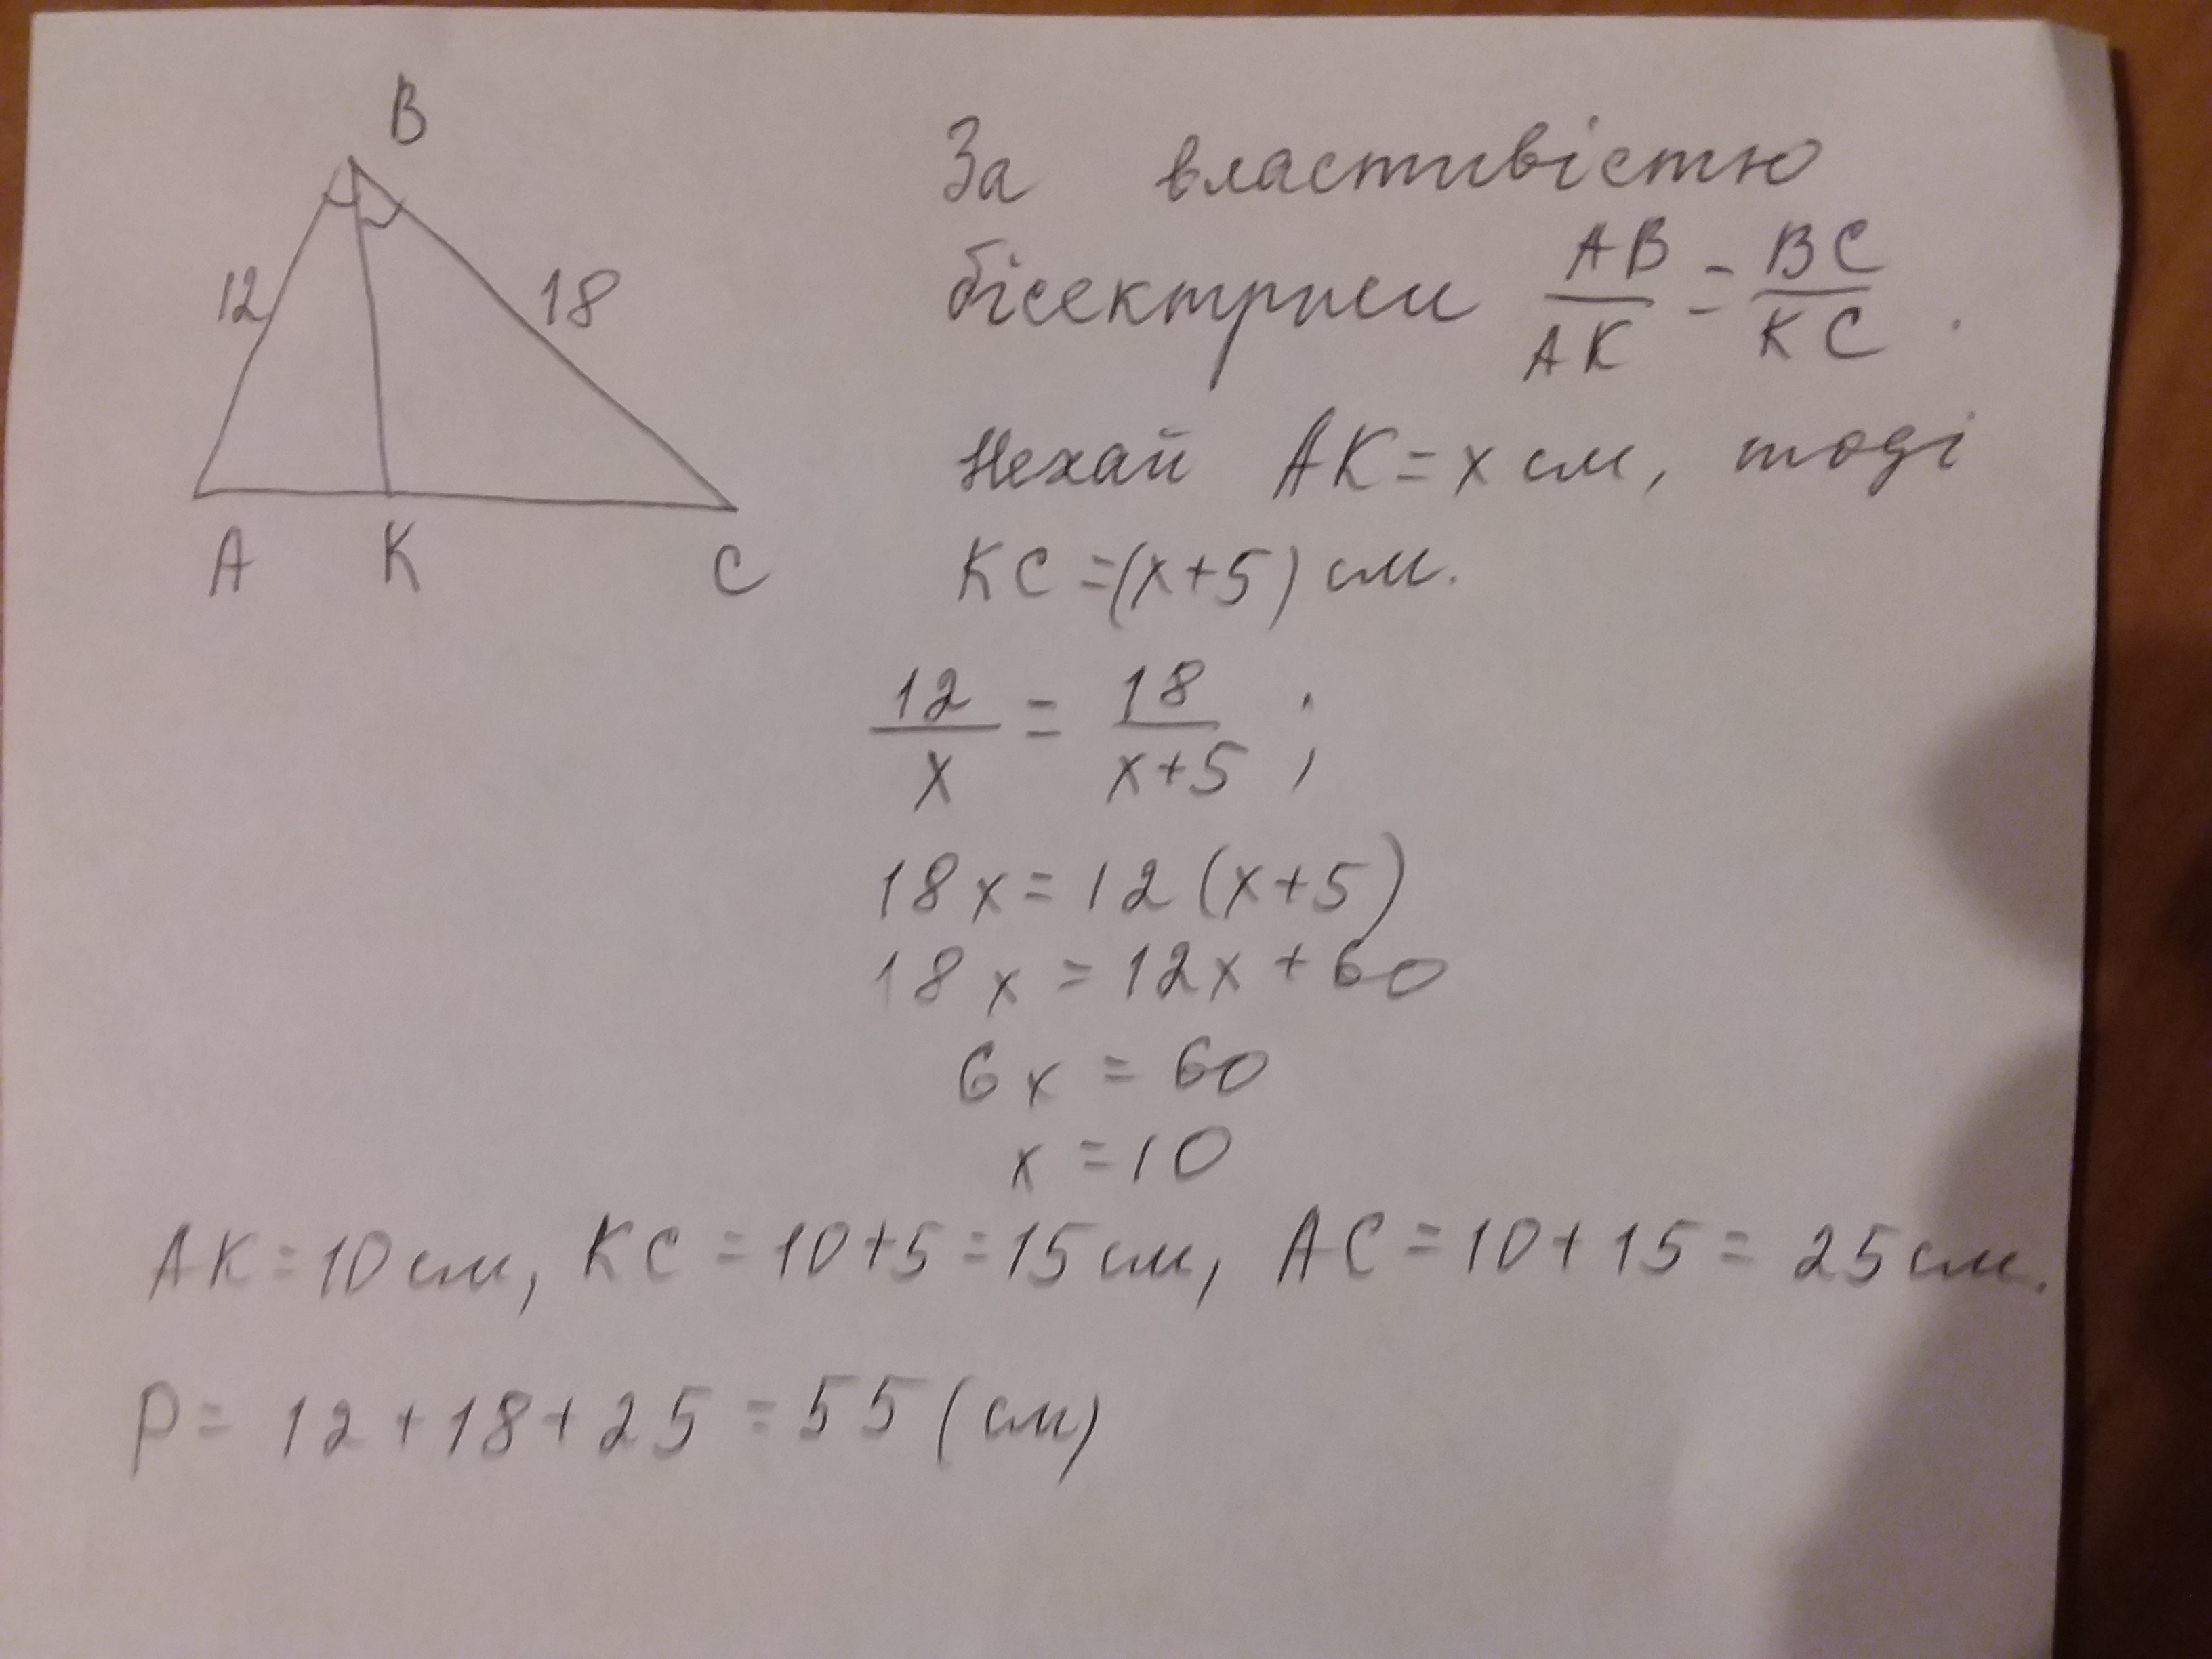 B
12
18
A K C
За властивістю
бісектриси AB/AK = BC/KC .
Нехай AK = x см, тоді
KC = (x+5) см.
12/x = 18/(x+5) ;
18x = 12(x+5)
18x = 12x + 60
6x = 60
x = 10
AK = 10 см, KC = 10+5 = 15 см, AC = 10 + 15 = 25 см.
P = 12 + 18 + 25 = 55 (см)